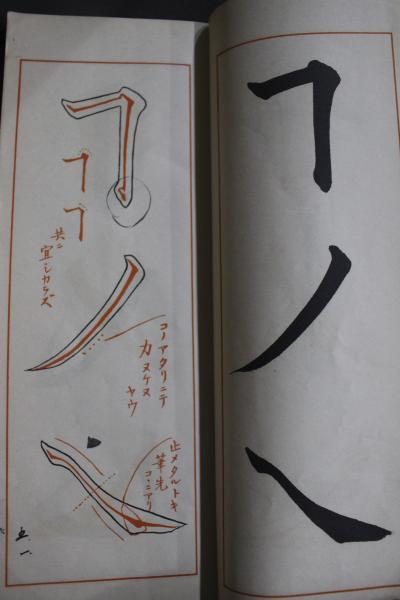 共ニ
宜シカラズ
コノアタリニテ
カヌケヌ
ヤウ
止メタルトキ
筆先
コヽニアリ